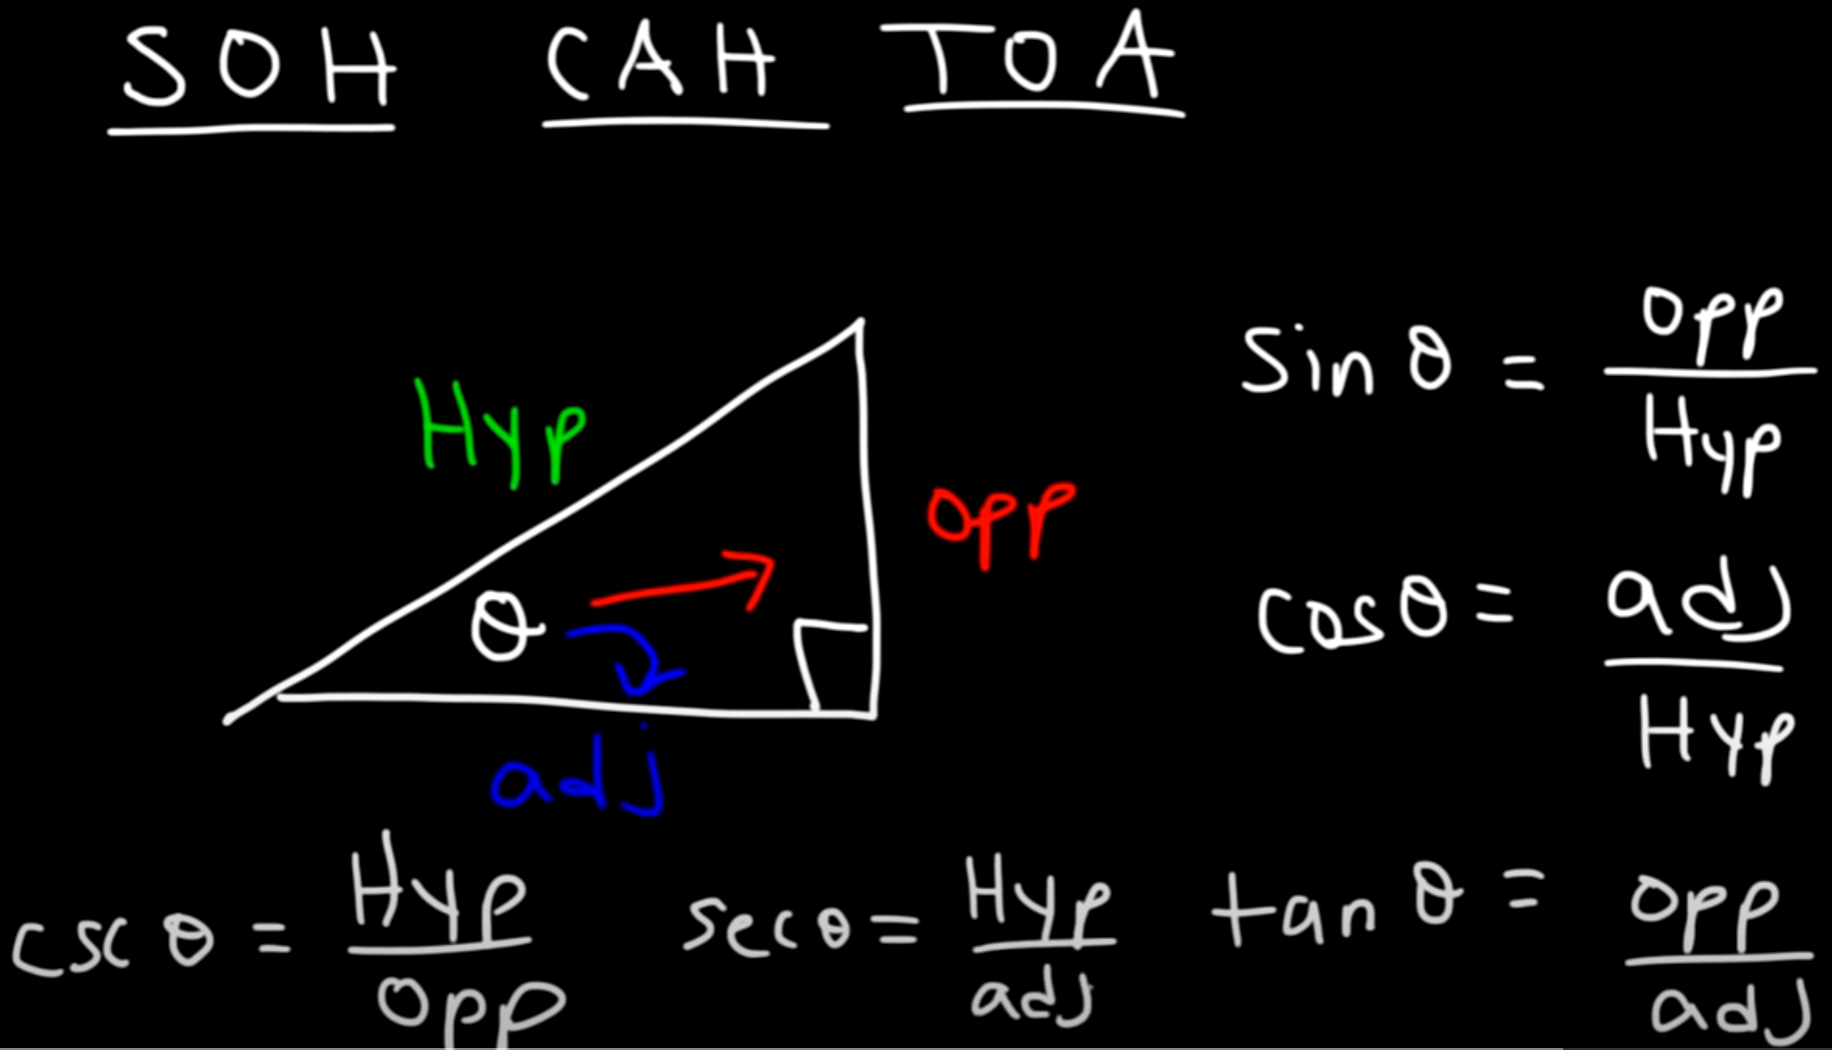 SOH CAH TOA
Hyp
opp
θ
adj
sin θ = opp / Hyp
cos θ = adj / Hyp
csc θ = Hyp / opp
sec θ = Hyp / adj
tan θ = opp / adj